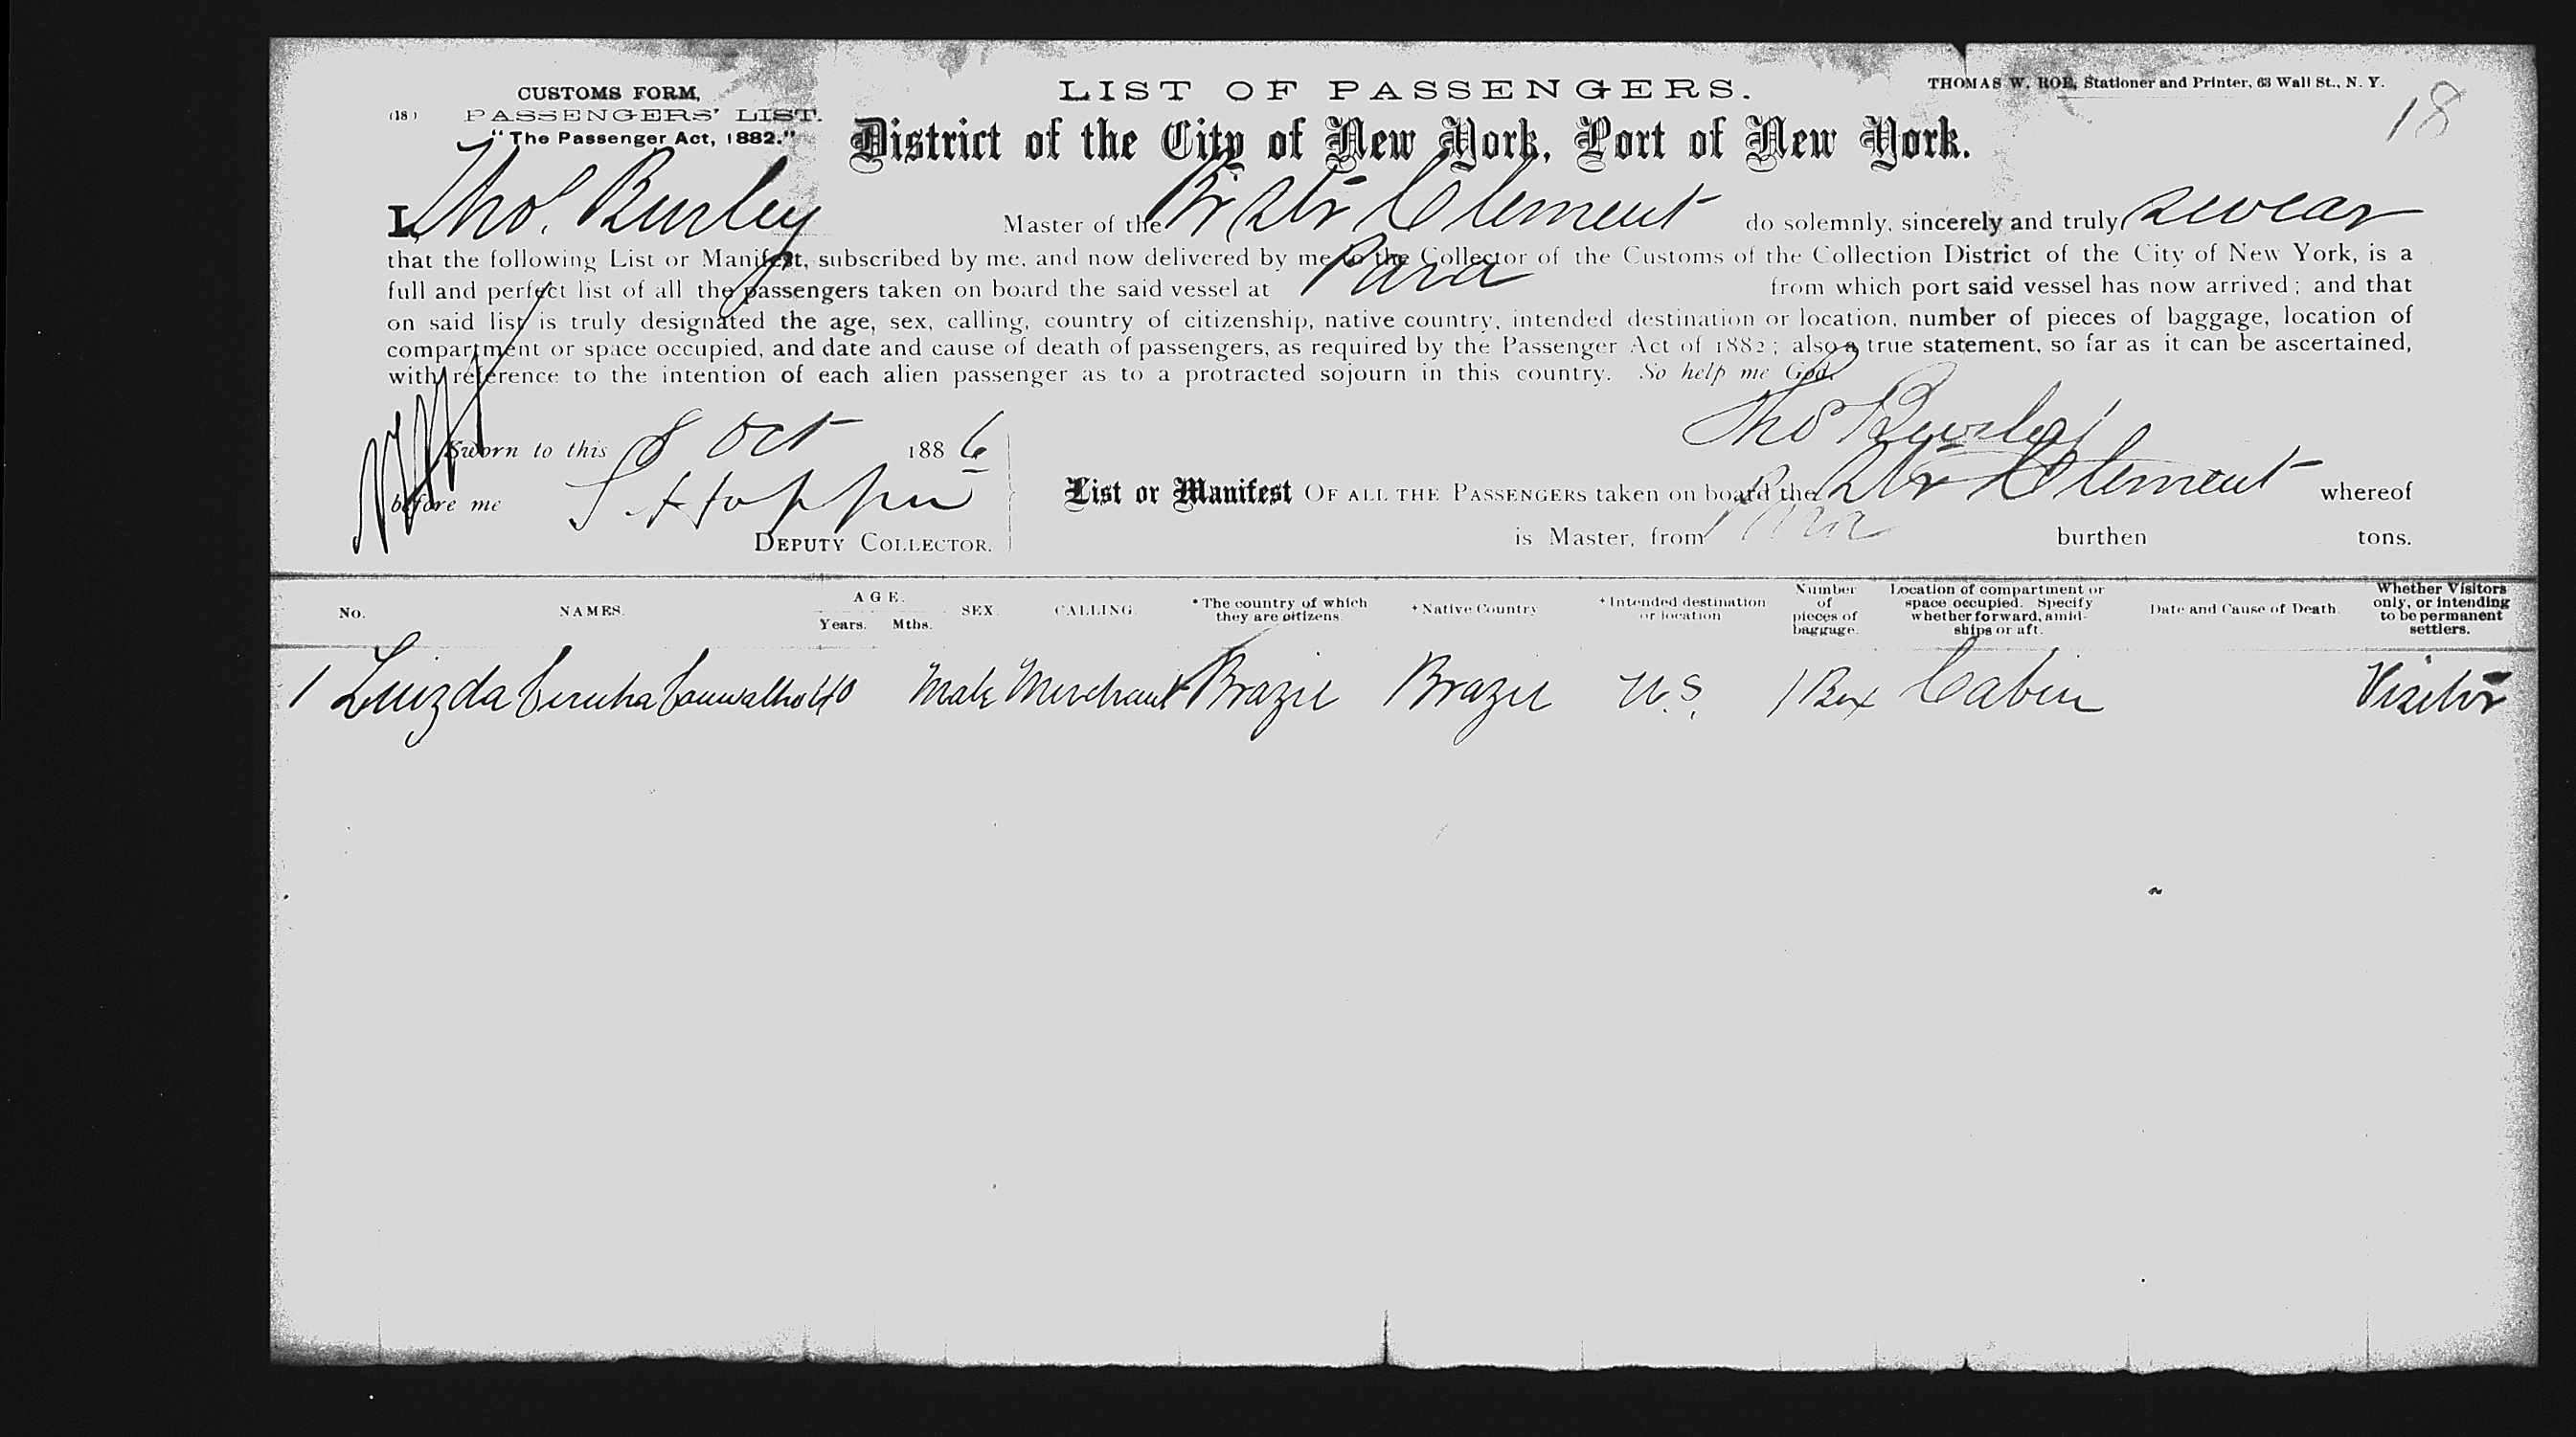 CUSTOMS FORM,
(18) PASSENGERS' LIST.
"The Passenger Act, 1882."
LIST OF PASSENGERS.
THOMAS W. ROE, Stationer and Printer, 63 Wall St., N. Y.
18
District of the City of New York, Port of New York.
I, Thos. Burley Master of the Br Str Clement do solemnly, sincerely and truly swear
that the following List or Manifest, subscribed by me, and now delivered by me to the Collector of the Customs of the Collection District of the City of New York, is a
full and perfect list of all the passengers taken on board the said vessel at Para from which port said vessel has now arrived; and that
on said list is truly designated the age, sex, calling, country of citizenship, native country, intended destination or location, number of pieces of baggage, location of
compartment or space occupied, and date and cause of death of passengers, as required by the Passenger Act of 1882; also a true statement, so far as it can be ascertained,
with reference to the intention of each alien passenger as to a protracted sojourn in this country. So help me God.
Thos Burley
Sworn to this 8 Oct 1886
before me
DEPUTY COLLECTOR.
List or Manifest OF ALL THE PASSENGERS taken on board the Br Str Clement whereof
is Master, from Para burthen tons.
No. NAMES. AGE. Years. Mths. SEX. CALLING. *The country of which they are citizens. *Native Country *Intended destination or location Number of pieces of baggage. Location of compartment or space occupied. Specify whether forward, amidships or aft. Date and Cause of Death. Whether Visitors only, or intending to be permanent settlers.
1 Luiz da 40 Male Merchant Brazil Brazil U.S. 1 Box Cabin Visitor